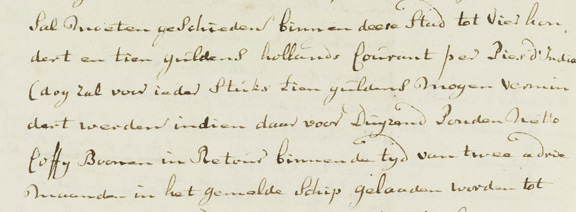 Sal moeten geschieden binnen deese Stad tot Vier hon
dert en tien guldens hollands Courant per Pies d'India
(dog zal voor ieder Stuks tien guldens mogen vermin
dert werden indien daar voor Duyzend Ponden Netto
Coffy Boonen in Retour binnen de tyd van twee a drie
maanden in het gemelde Schip gelaaden worden tot